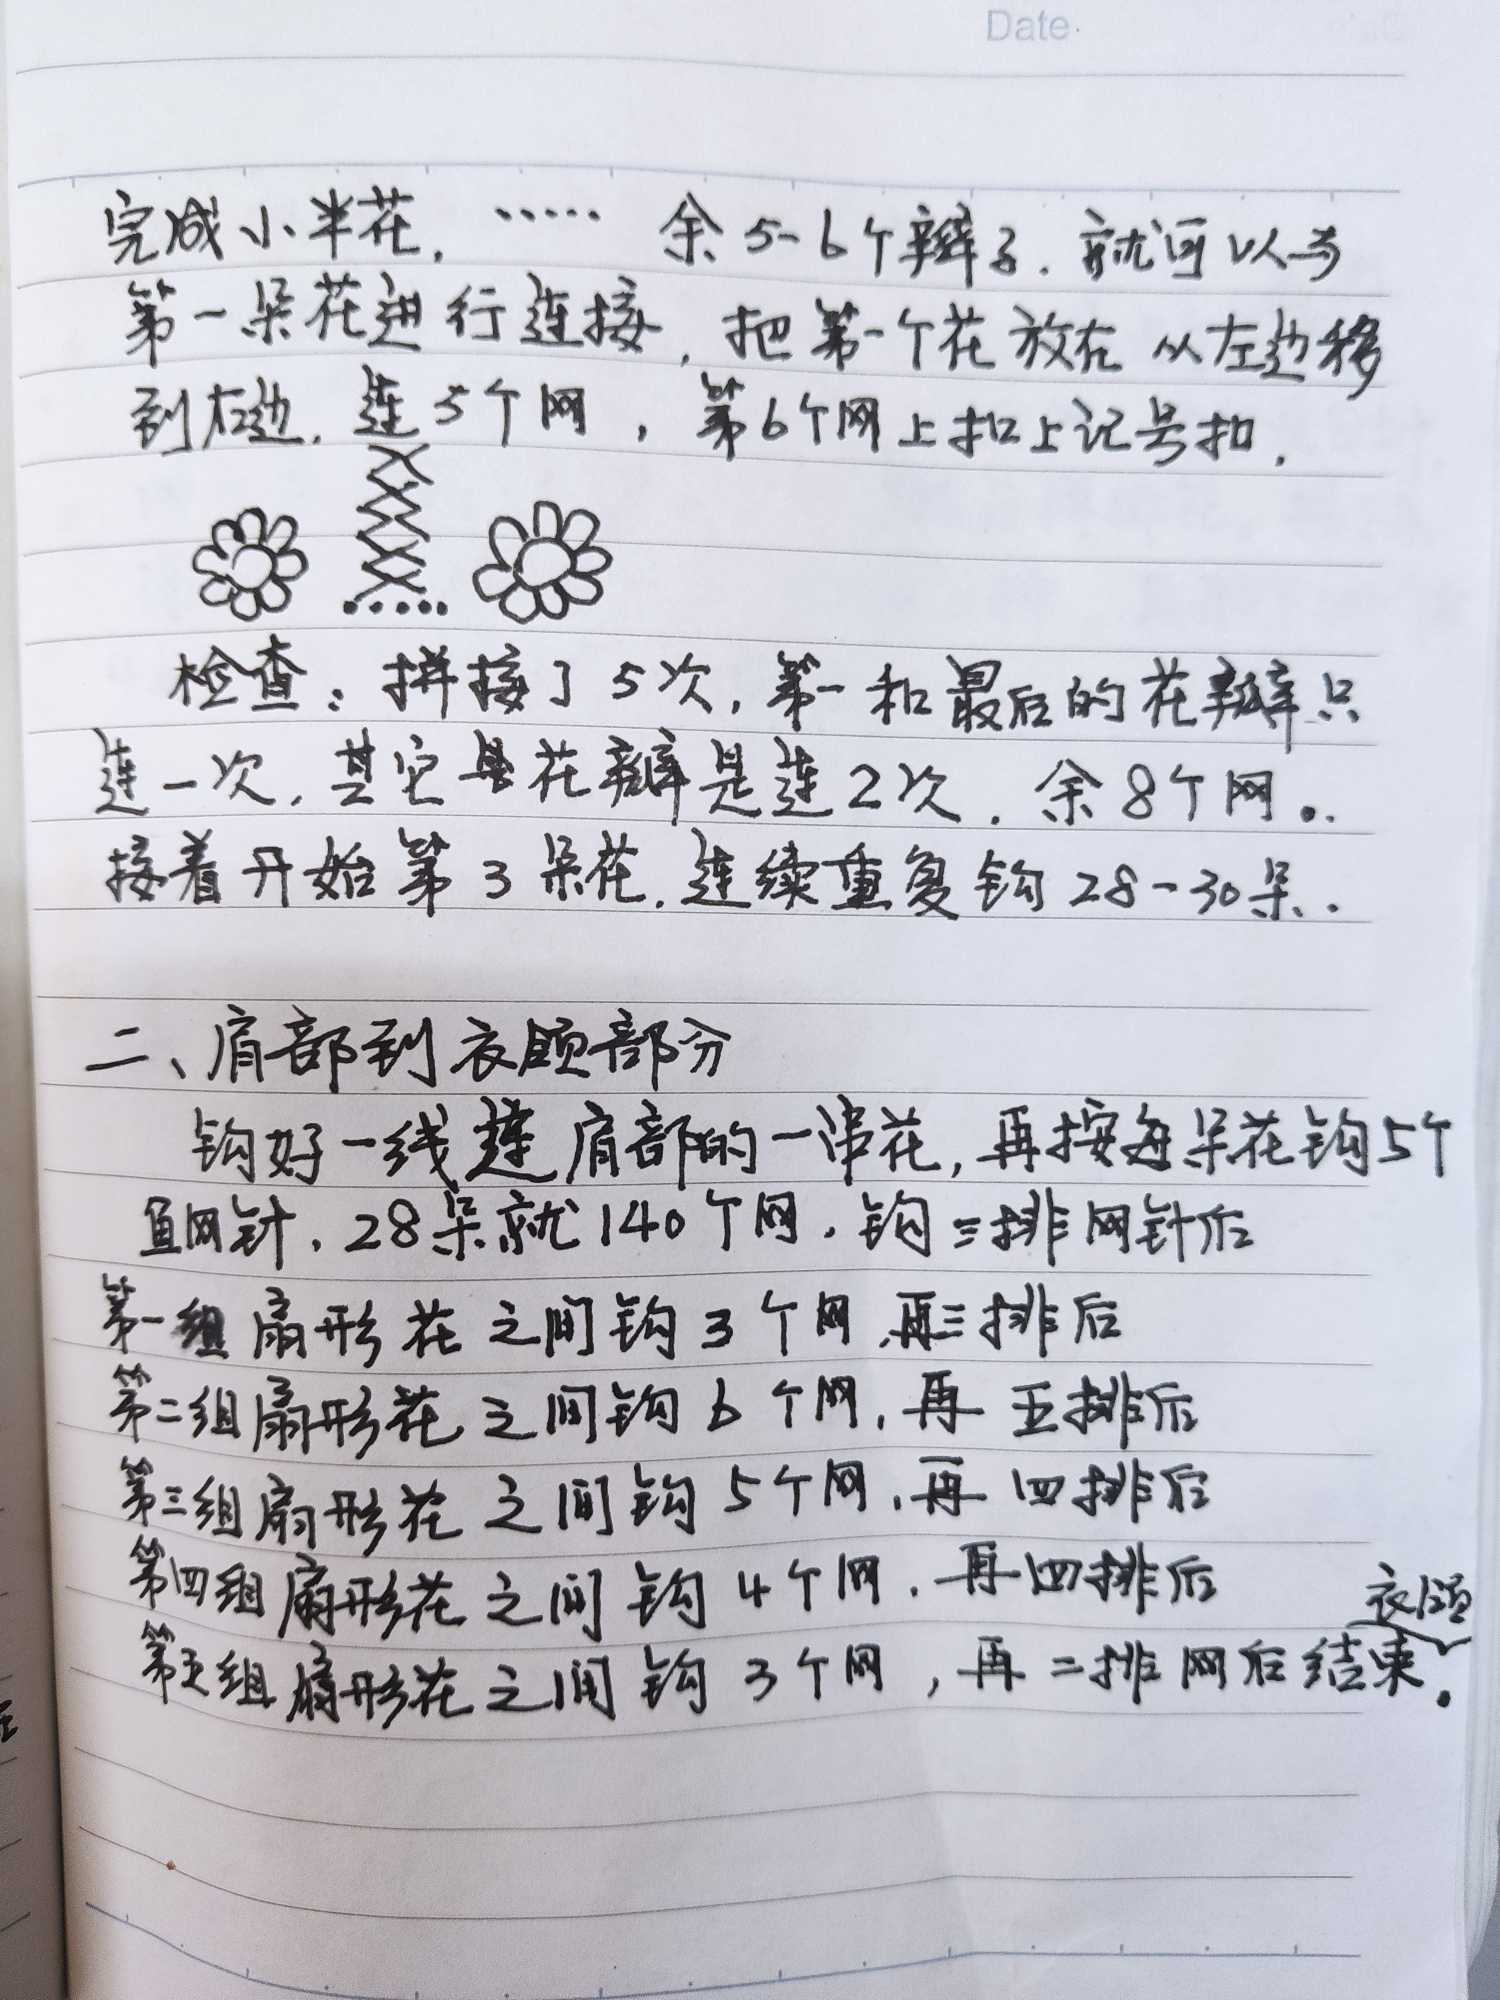 Date
完成小半花，…… 余5-6个辫子．就可以与
第一朵花进行连接，把第一个花放在从左边移
到右边．连5个网，第6个网上扣上记号扣．
检查：拼接了5次，第一和最后的花瓣只
连一次，其它花瓣是连2次．余8个网。
接着开始第3朵花．连续重复钩28-30朵．
二、肩部到衣领部分
钩好一线连肩部的一串花，再按每朵花钩5个
直网针．28朵就140个网．钩三排网针后
第一组扇形花之间钩3个网，再三排后
第二组扇形花之间钩6个网，再五排后
第三组扇形花之间钩5个网，再四排后
第四组扇形花之间钩4个网．再四排后
衣领
第五组扇形花之间钩3个网，再二排网后结束。